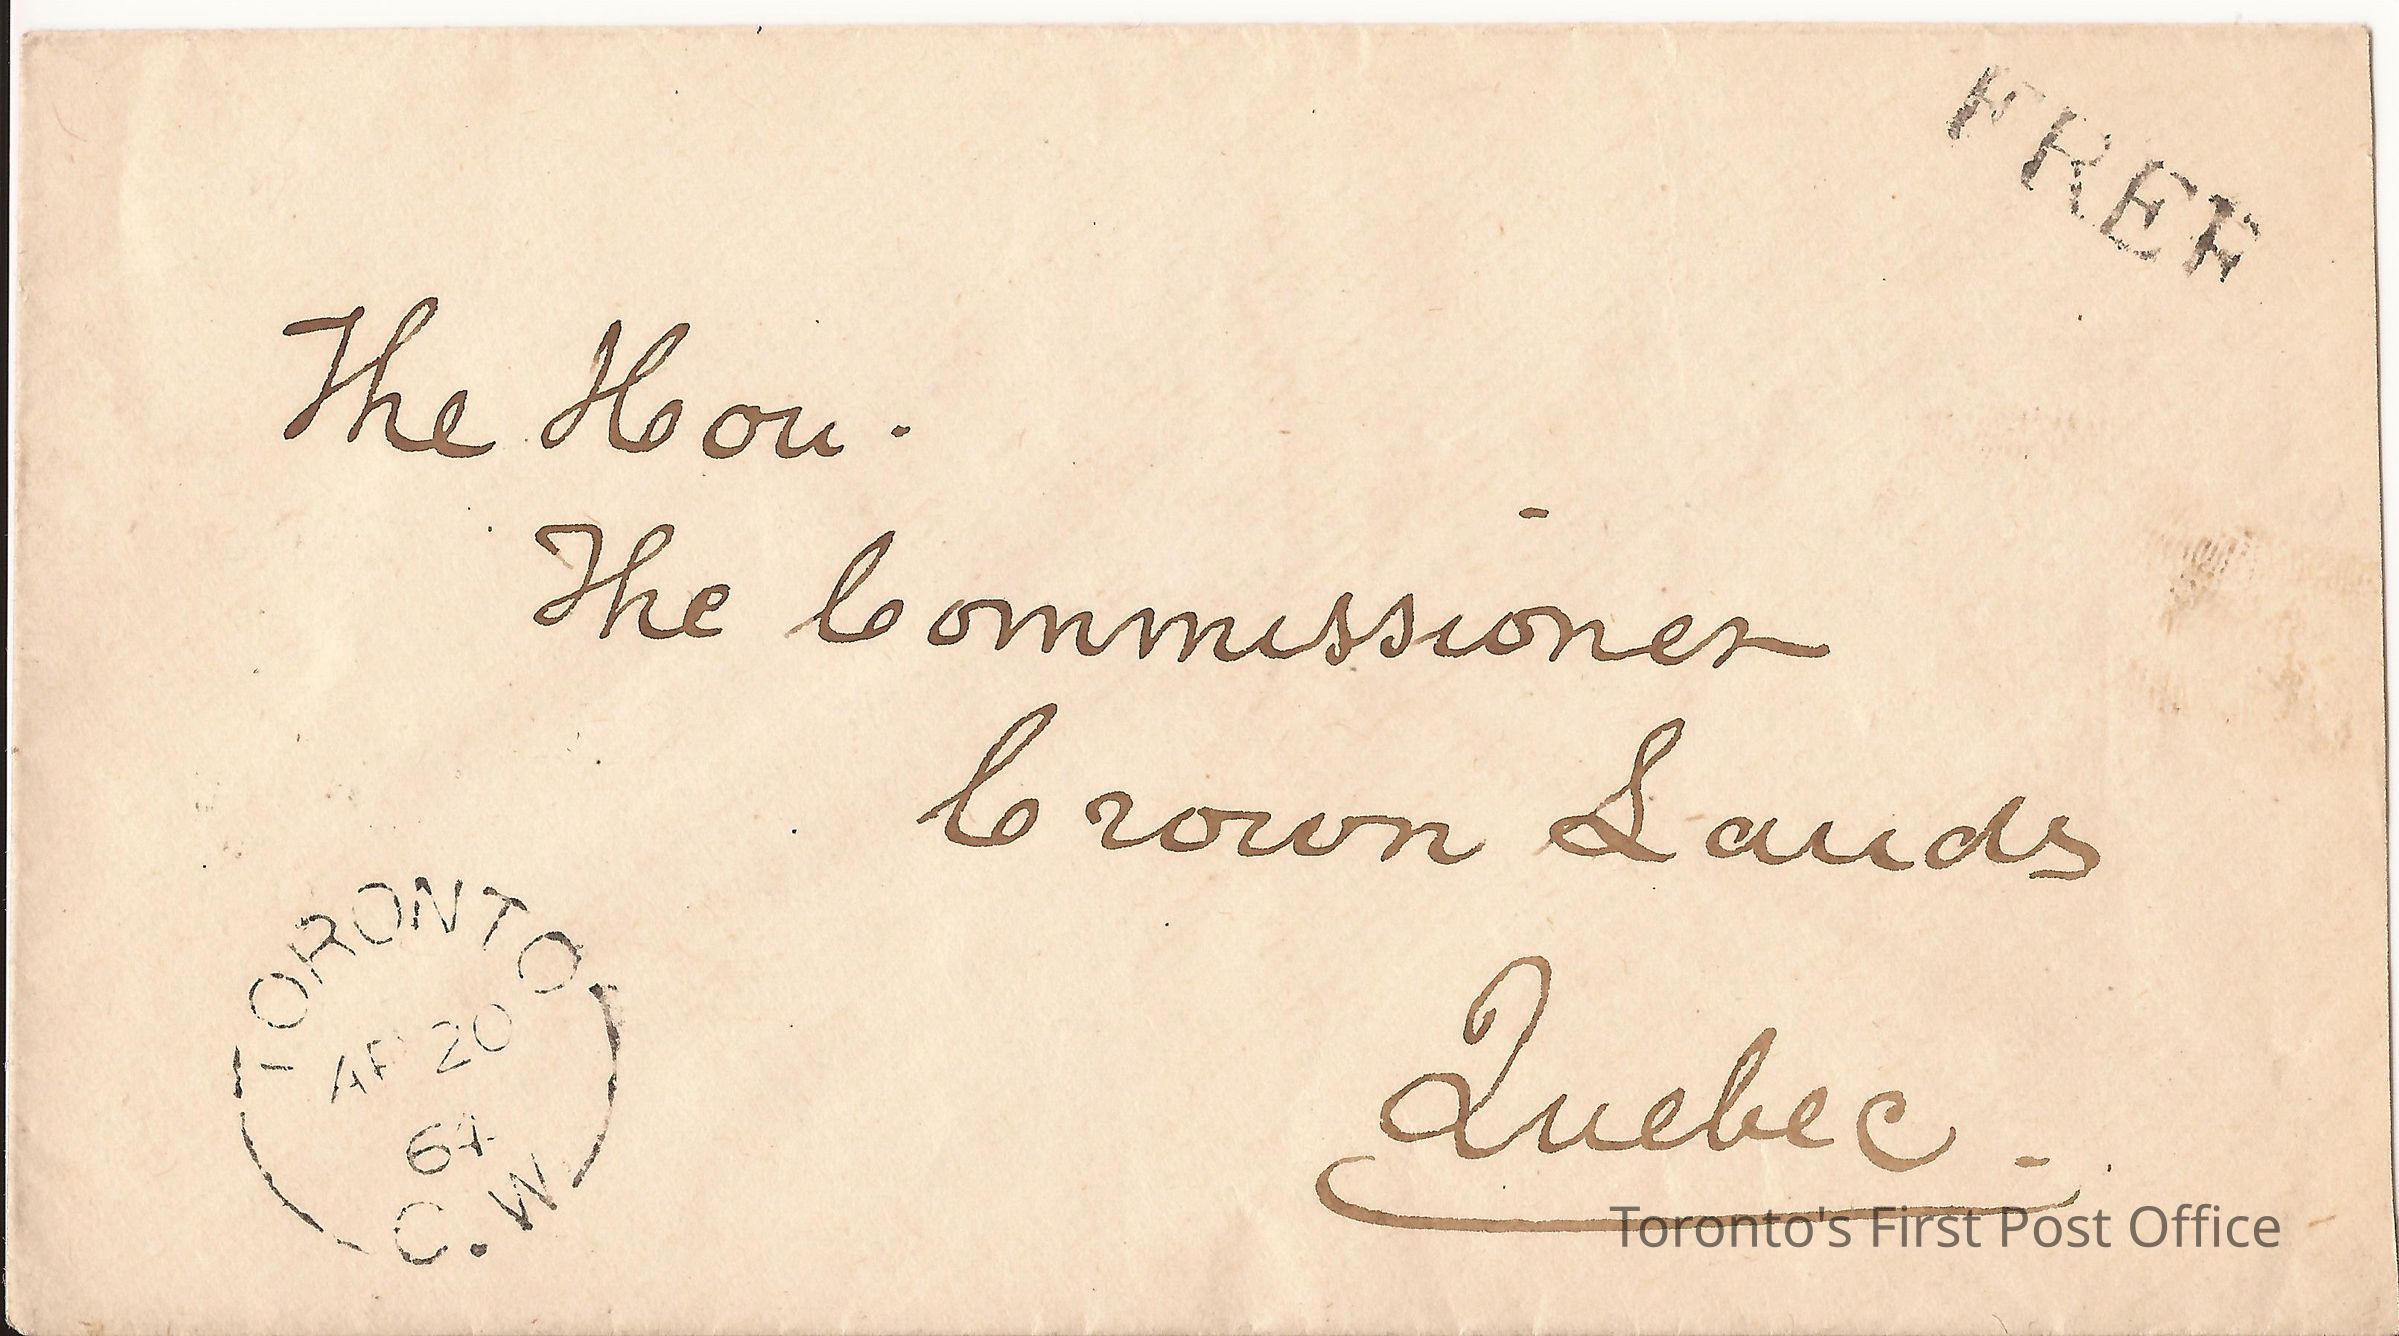 FREE
The Hon.
The Commissioner
Crown Lands
Quebec.
TORONTO
AP 20
64
C.W
Toronto's First Post Office